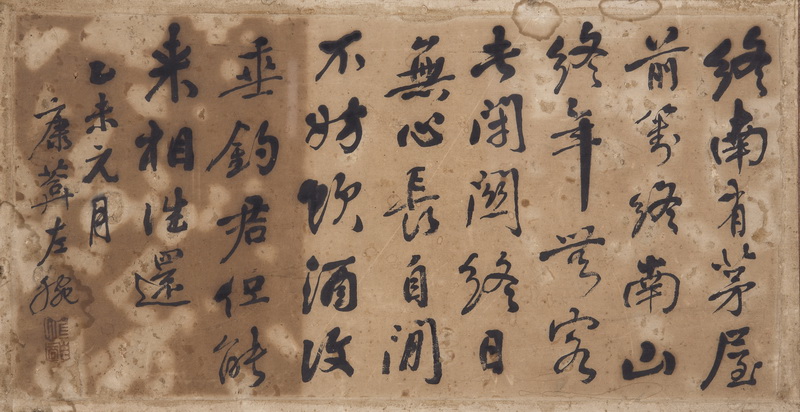 終南有茅屋
前對終南山
終年無客
長閉關終日
無心長自閒
不妨飲酒復
垂釣君但能
来相往還
乙未元月
康葊左腕